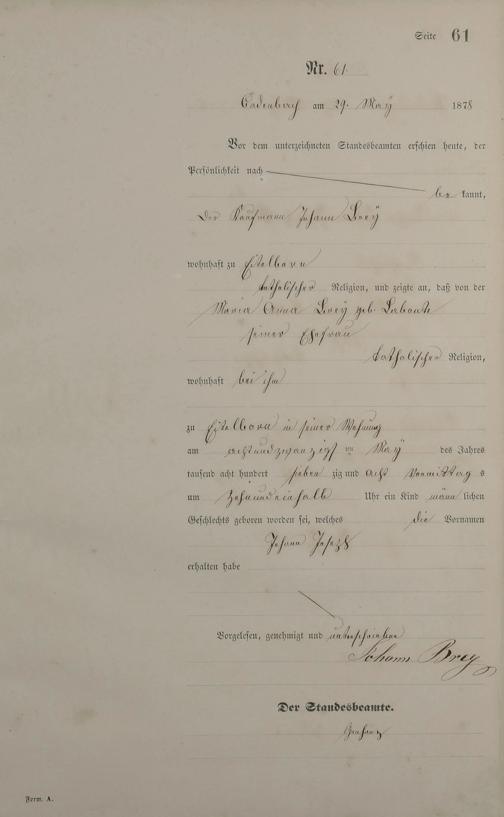 Seite 61
Nr. 61.
Cadenbach am 29. May 1878
Vor dem unterzeichneten Standesbeamten erschien heute, der
Persönlichkeit nach
be kannt,
der Kaufmann Johann Breÿ
wohnhaft zu Eitelborn
katholischer Religion, und zeigte an, daß von der
Maria Anna Breÿ geb. Labonte
seiner Ehefrau
katholischer Religion,
wohnhaft bei ihm
zu Eitelborn in seiner Wohnung
am achtundzwanzigst en May des Jahres
tausend acht hundert sieben zig und acht Vormittag s
um zehnundeinhalb Uhr ein Kind männ lichen
Geschlechts geboren worden sei, welches die Vornamen
Johann Joseph
erhalten habe
Vorgelesen, genehmigt und unterschrieben
Johann Brey
Der Standesbeamte.
Form. A.